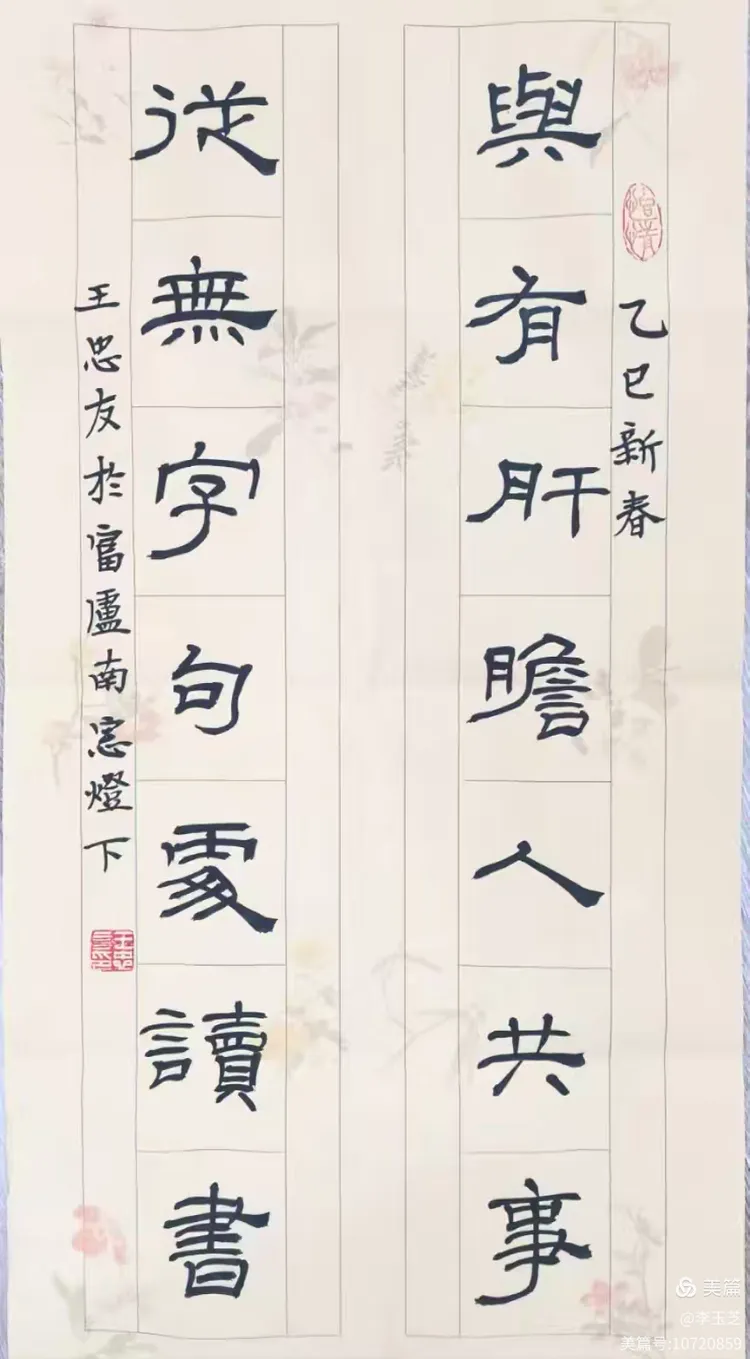 乙巳新春
與有肝膽人共事
従無字句處讀書
王忠友於富廬南窓燈下
美篇
@李玉芝
美篇号:10720859